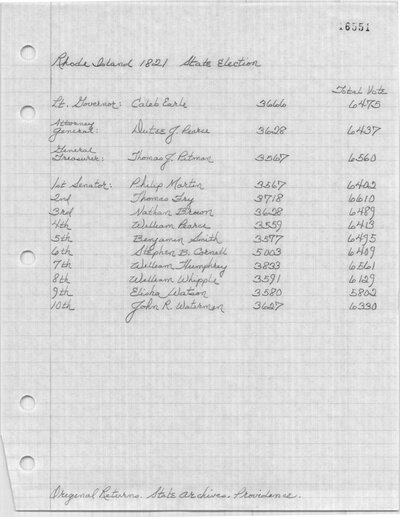 16551
Rhode Island 1821 State Election
Total Vote
Lt. Governor: Caleb Earle 3666 6475
Attorney
General: Dutee J. Pearce 3628 6437
General
Treasurer: Thomas G. Pitman 3567 6560
1st Senator: Philip Martin 3567 6402
2nd Thomas Fry 3718 6610
3rd Nathan Brown 3628 6489
4th William Pearce 3559 6413
5th Benjamin Smith 3577 6495
6th Stephen B. Cornell 5003 6409
7th William Humphrey 3833 6561
8th William Whipple 3591 6129
9th Elisha Watson 3580 5802
10th John R. Waterman 3627 6330
Original Returns. State Archives. Providence.